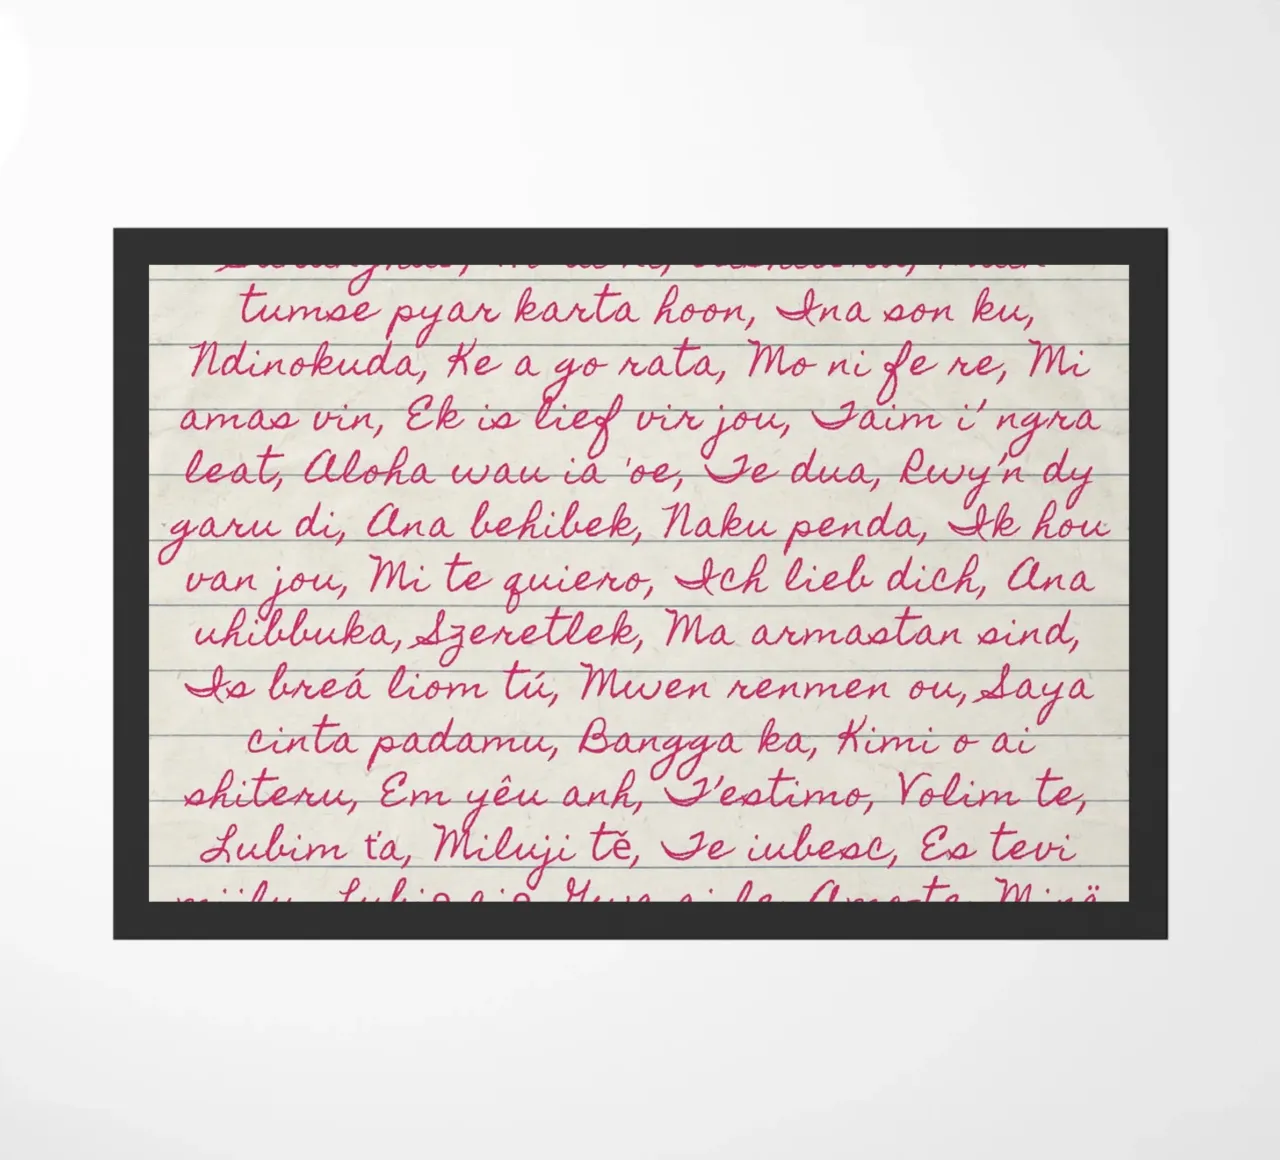 tumse pyar karta hoon, Ina son ku,
Ndinokuda, Ke a go rata, Mo ni fe re, Mi
amas vin, Ek is lief vir jou, Taim i' ngra
leat, Aloha wau ia 'oe, Te dua, Rwy'n dy
garu di, Ana behibek, Naku penda, Ik hou
van jou, Mi te quiero, Ich lieb dich, Ana
uhibbuka, Szeretlek, Ma armastan sind,
Is breá liom tú, Mwen renmen ou, Saya
cinta padamu, Bangga ka, Kimi o ai
shiteru, Em yêu anh, T'estimo, Volim te,
Lubim ťa, Miluji tě, Te iubesc, Es tevi